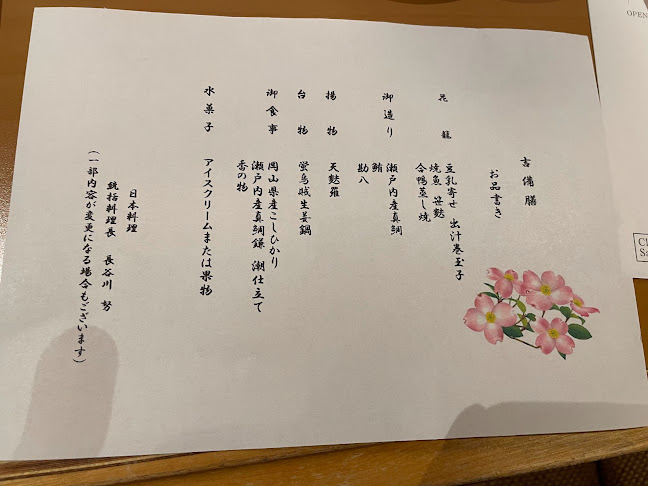 吉備膳
お品書き
花籠
豆乳寄せ 出汁巻玉子
焼魚 笹麩
合鴨蒸し焼
御造り
瀬戸内産真鯛
鮪
勘八
揚物
天麩羅
台物
蛍烏賊生姜鍋
御食事
岡山県産こしひかり
瀬戸内産真鯛鎌 潮仕立て
香の物
水菓子
アイスクリームまたは果物
日本料理
統括料理長 長谷川 努
(一部内容が変更になる場合もございます)
OPEN